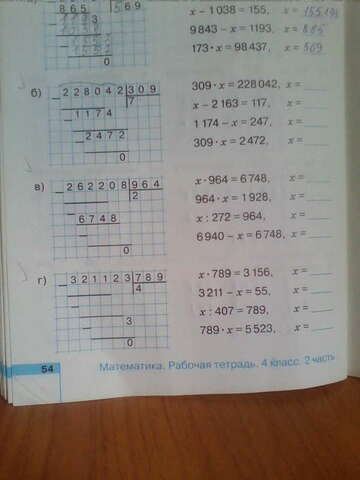 865 569
x − 1 038 = 155, x =
9 843 − x = 1193, x = 885
173 · x = 98 437, x = 569
0
б) 228042 309
7
1174
2472
0
309 · x = 228 042, x =
x − 2 163 = 117, x =
1 174 − x = 247, x =
309 · x = 2 472, x =
в) 262208 964
2
6748
0
x · 964 = 6 748, x =
964 · x = 1 928, x =
x : 272 = 964, x =
6 940 − x = 6 748, x =
г) 321123 789
4
3
0
x · 789 = 3 156, x =
3 211 − x = 55, x =
x : 407 = 789, x =
789 · x = 5 523, x =
54 Математика. Рабочая тетрадь. 4 класс. 2 часть